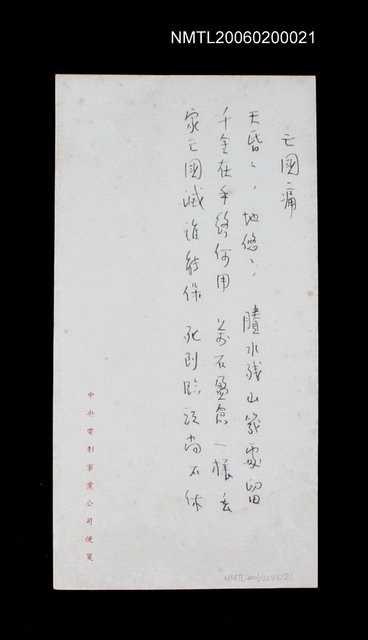 NMTL20060200021
亡國痛
天昏々，地悠々， 賸水殘山幾處留
千金在手終何用 萬石盈倉一樣丟
家亡國滅誰能保 死到臨頭尚不休
中央電影事業公司便箋
NMTL20060200021